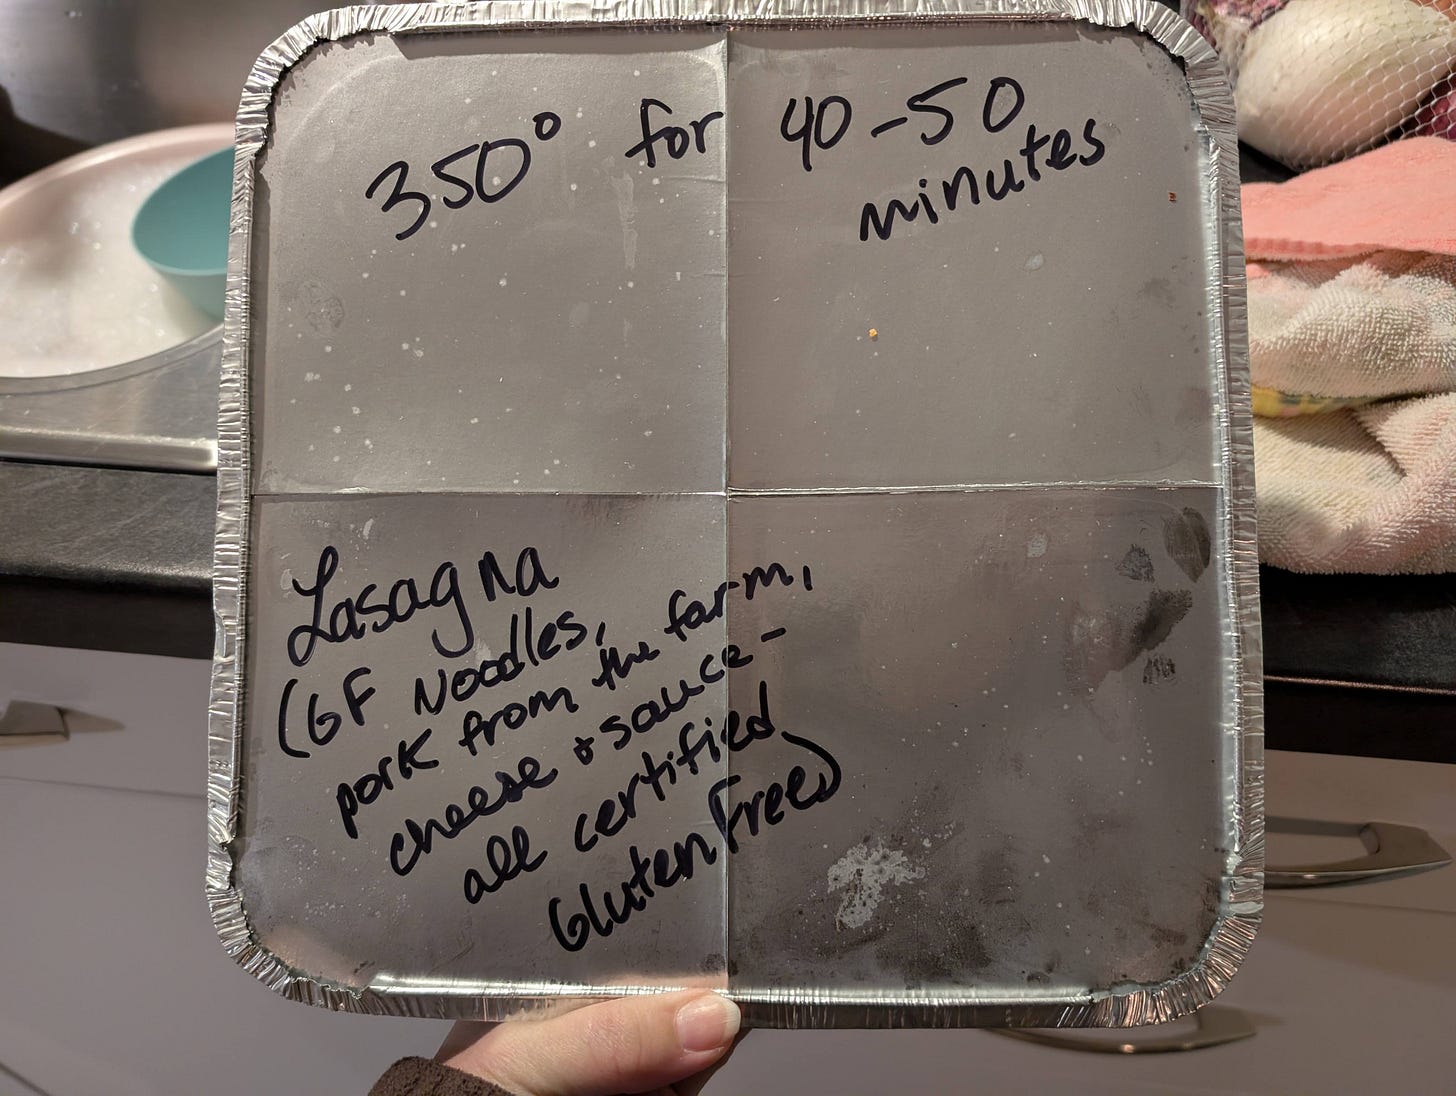 350° for 40-50
minutes
Lasagna
(GF Noodles,
pork from the farm,
cheese + sauce -
all certified
Gluten Free)